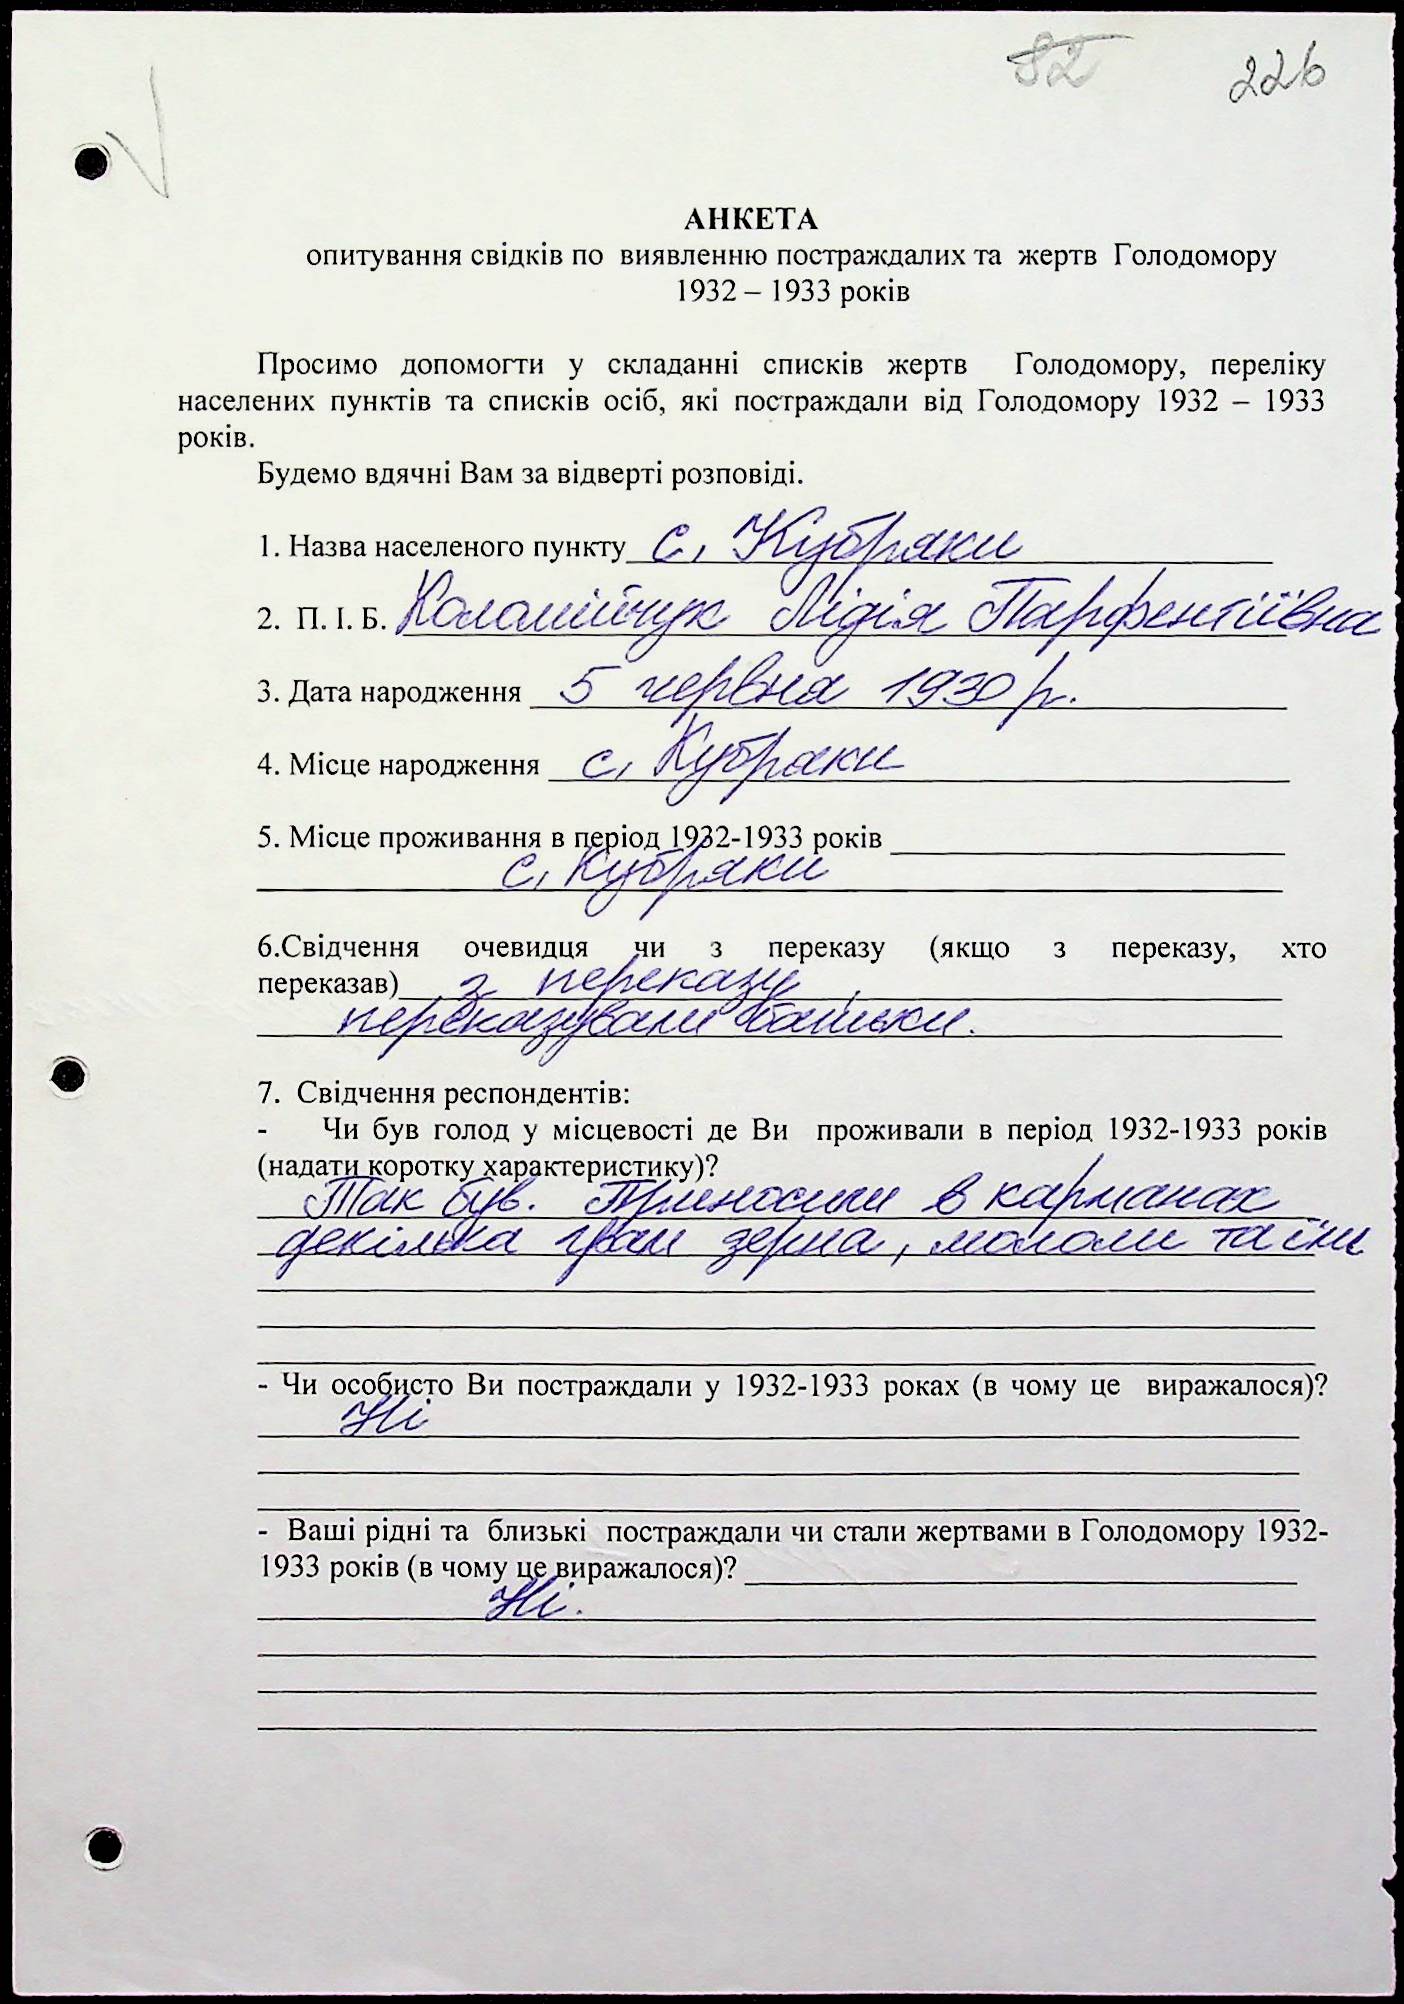 82 226
АНКЕТА
опитування свідків по виявленню постраждалих та жертв Голодомору
1932 – 1933 років
Просимо допомогти у складанні списків жертв Голодомору, переліку
населених пунктів та списків осіб, які постраждали від Голодомору 1932 – 1933
років.
Будемо вдячні Вам за відверті розповіді.
1. Назва населеного пункту с. Кубряки
2. П. І. Б. Коломійчук Лідія Парфентіївна
3. Дата народження 5 червня 1930 р.
4. Місце народження с. Кубряки
5. Місце проживання в період 1932-1933 років
с. Кубряки
6.Свідчення очевидця чи з переказу (якщо з переказу, хто
переказав) з переказу,
переказували батьки.
7. Свідчення респондентів:
- Чи був голод у місцевості де Ви проживали в період 1932-1933 років
(надати коротку характеристику)?
Так був. Приносили в карманах
декілька грам зерна, мололи та їли
- Чи особисто Ви постраждали у 1932-1933 роках (в чому це виражалося)?
Ні
- Ваші рідні та близькі постраждали чи стали жертвами в Голодомору 1932-
1933 років (в чому це виражалося)?
Ні.